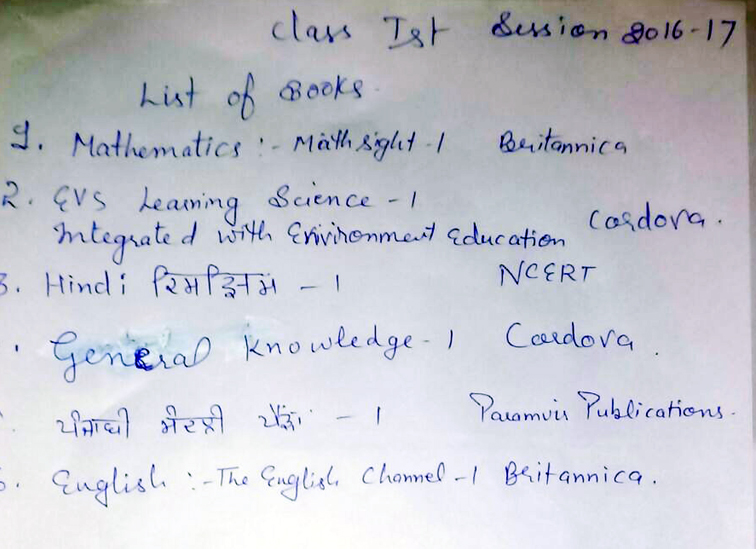 Class Ist Session 2016-17
List of Books
1. Mathematics :- Mathsight-1 Britannica
2. EVS Learning Science -1
Integrated with Environment Education Cordova.
3. Hindi रिमझिम - 1 NCERT
General Knowledge - 1 Cordova.
ਪੰਜਾਬੀ - 1 Paramvir Publications.
English :- The English Channel -1 Britannica.